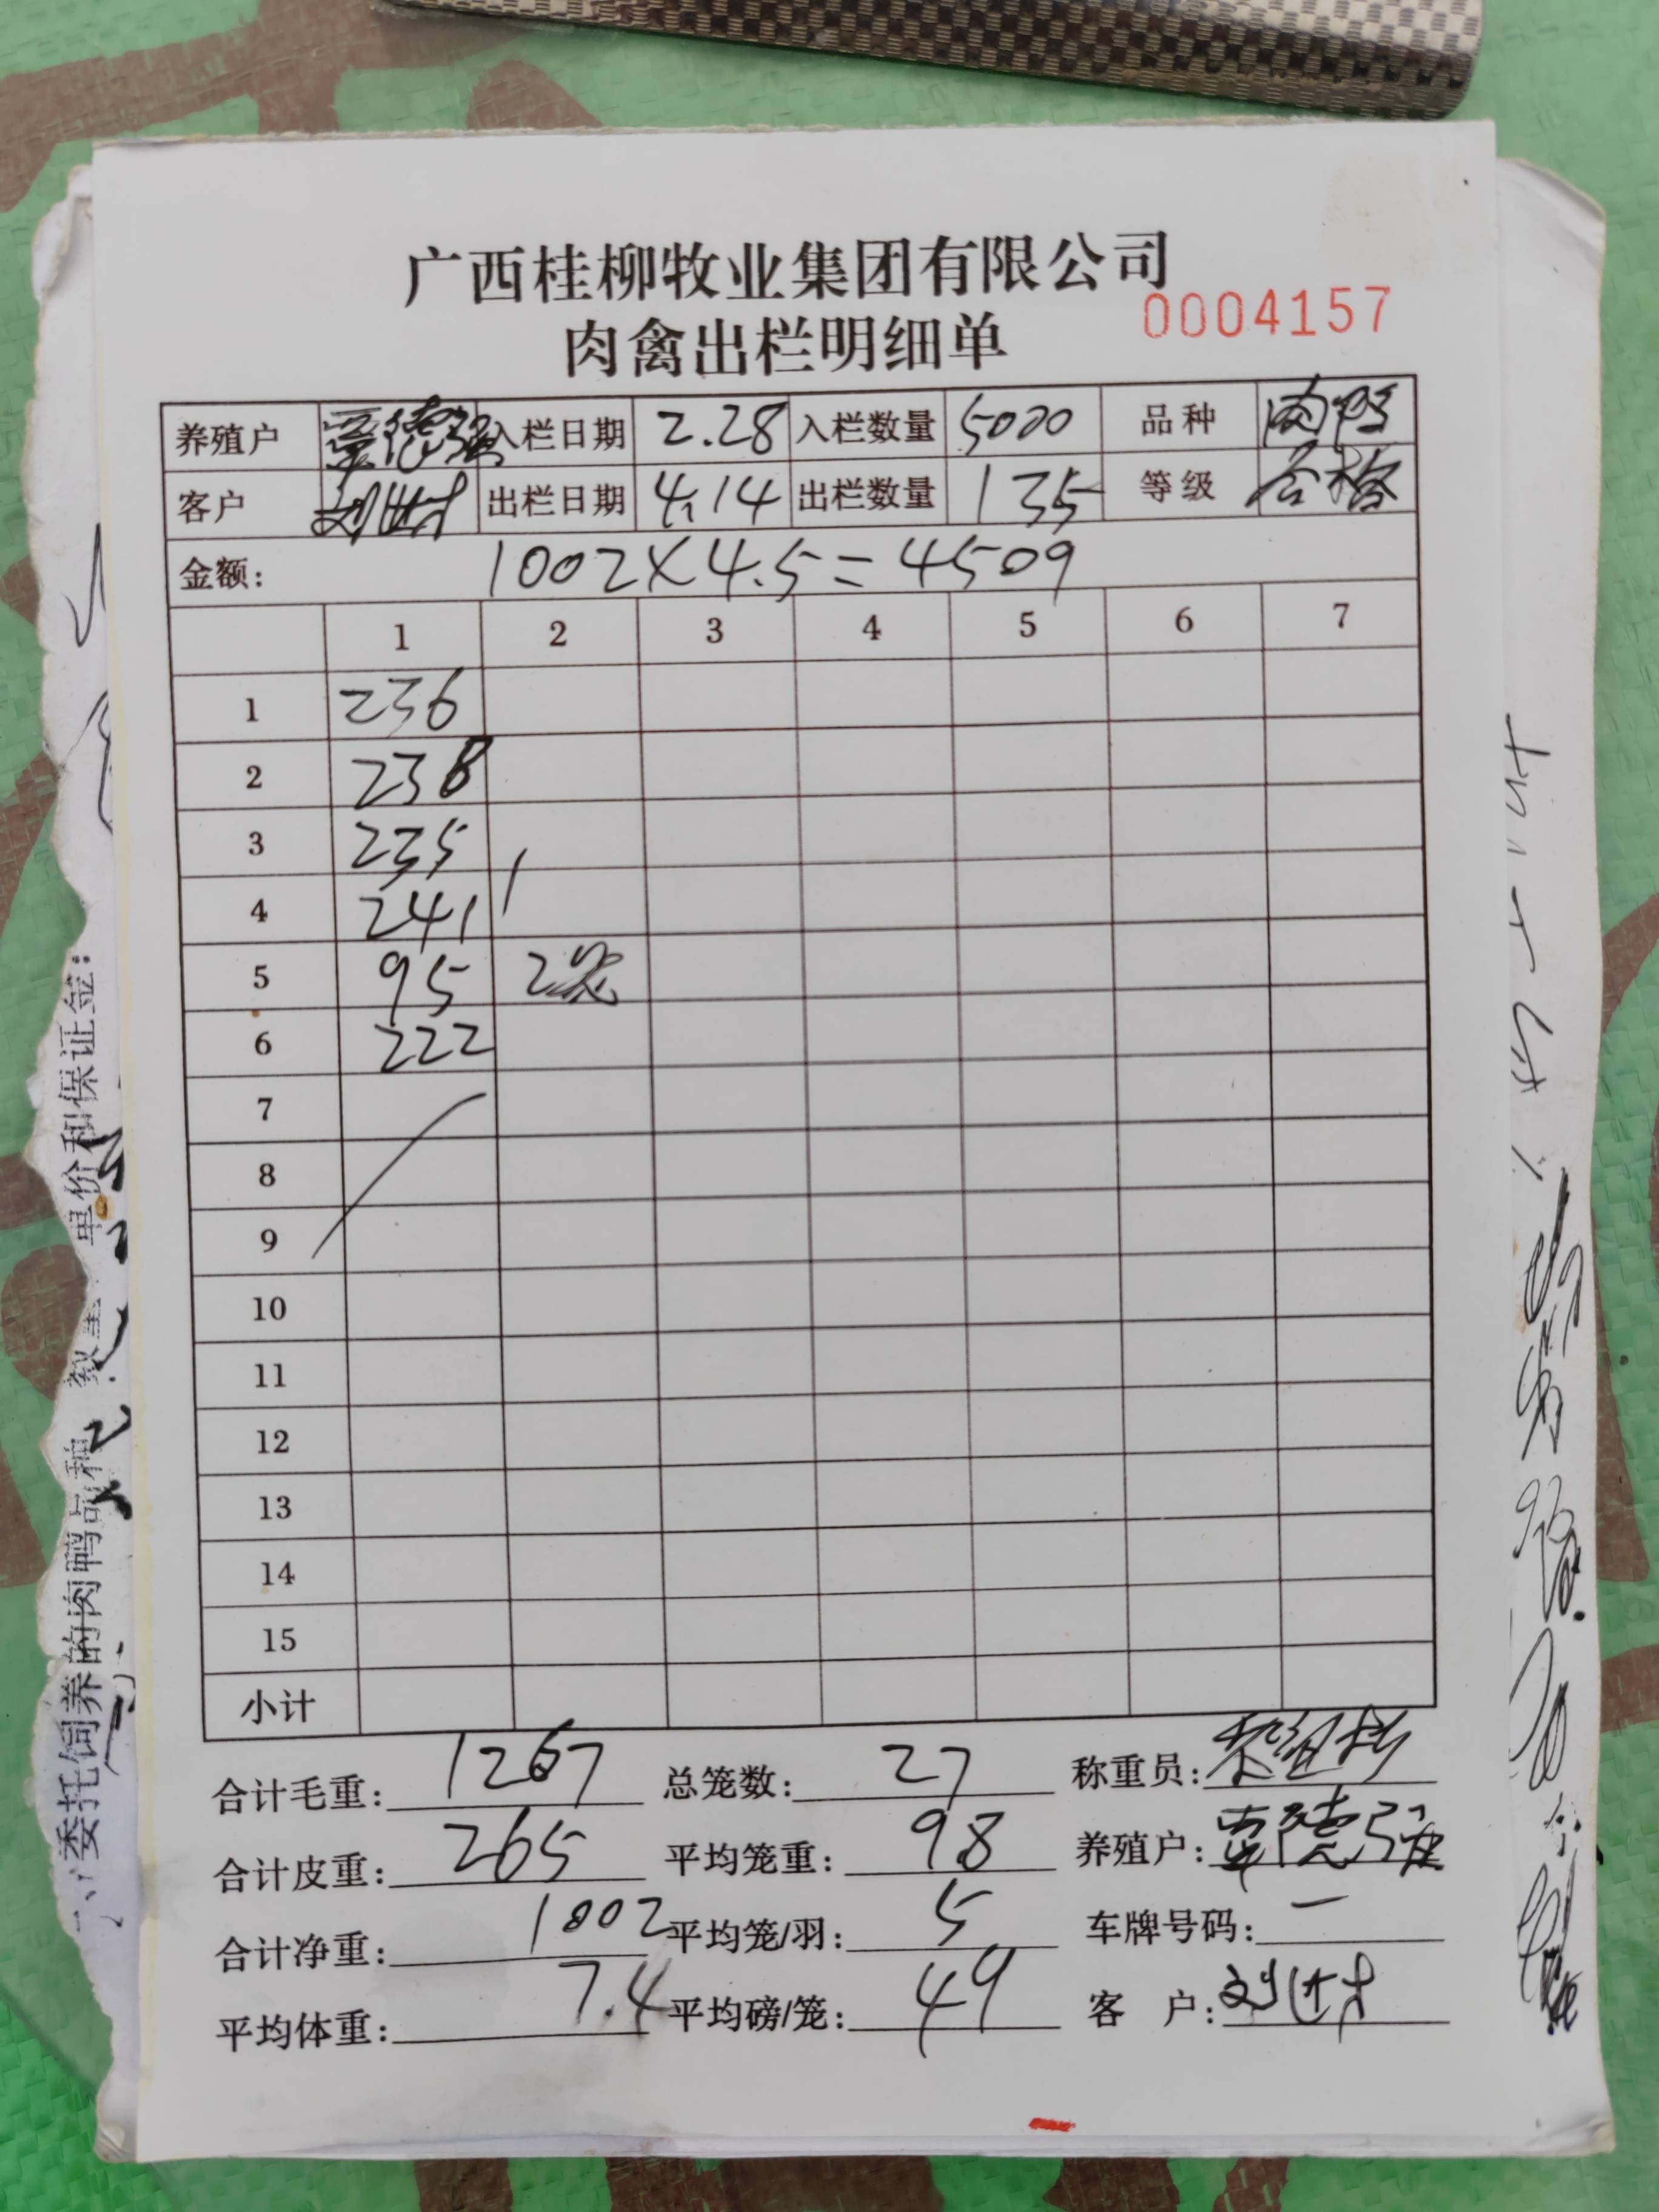 广西桂柳牧业集团有限公司
肉禽出栏明细单
0004157
养殖户 覃德强 入栏日期 2.28 入栏数量 5000 品种 肉鸭
客户 刘世才 出栏日期 4.14 出栏数量 135 等级 合格
金额: 1002×4.5=4509
1 2 3 4 5 6 7
1 236
2 238
3 235
4 241
5 95 2笼
6 222
7
8
9
10
11
12
13
14
15
小计
合计毛重: 1267 总笼数: 27 称重员:
合计皮重: 265 平均笼重: 9.8 养殖户: 覃德强
合计净重: 1002 平均笼/羽: 5 车牌号码: 一
平均体重: 7.4 平均磅/笼: 49 客 户: 刘世才
委托饲养的肉鸭品种 数量 单价和保证金: